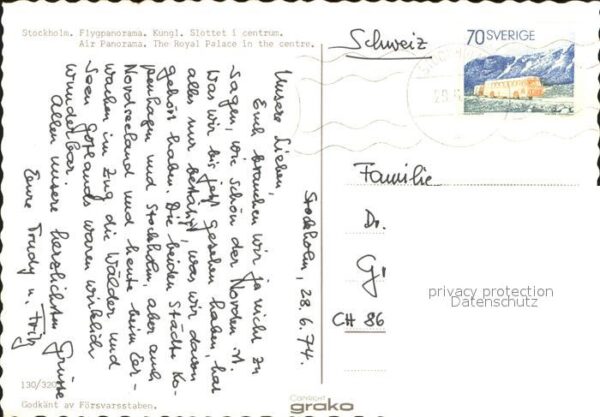 Stockholm. Flygpanorama. Kungl. Slottet i centrum.
Air Panorama. The Royal Palace in the centre.
Stockholm, 28.6.74.
Unsere Lieben,
Euch brauchen wir ja nicht zu
sagen, wie schön der Norden ist.
Was wir bis jetzt gesehen haben, hat
alles nur bestätigt, was wir davon
gehört haben. Die beiden Städte Ko-
penhagen und Stockholm, aber auch
Nordseeland und heute beim Er-
wachen im Zug die Wälder und
Seen Götlands waren wirklich
wunderbar.
Allen unsere herzlichsten Grüsse
Eure Trudy u. Fritz
130/320
Godkänt av Försvarsstaben.
grako
70 SVERIGE
Schweiz
Familie
Dr.
G
CH 86
privacy protection
Datenschutz